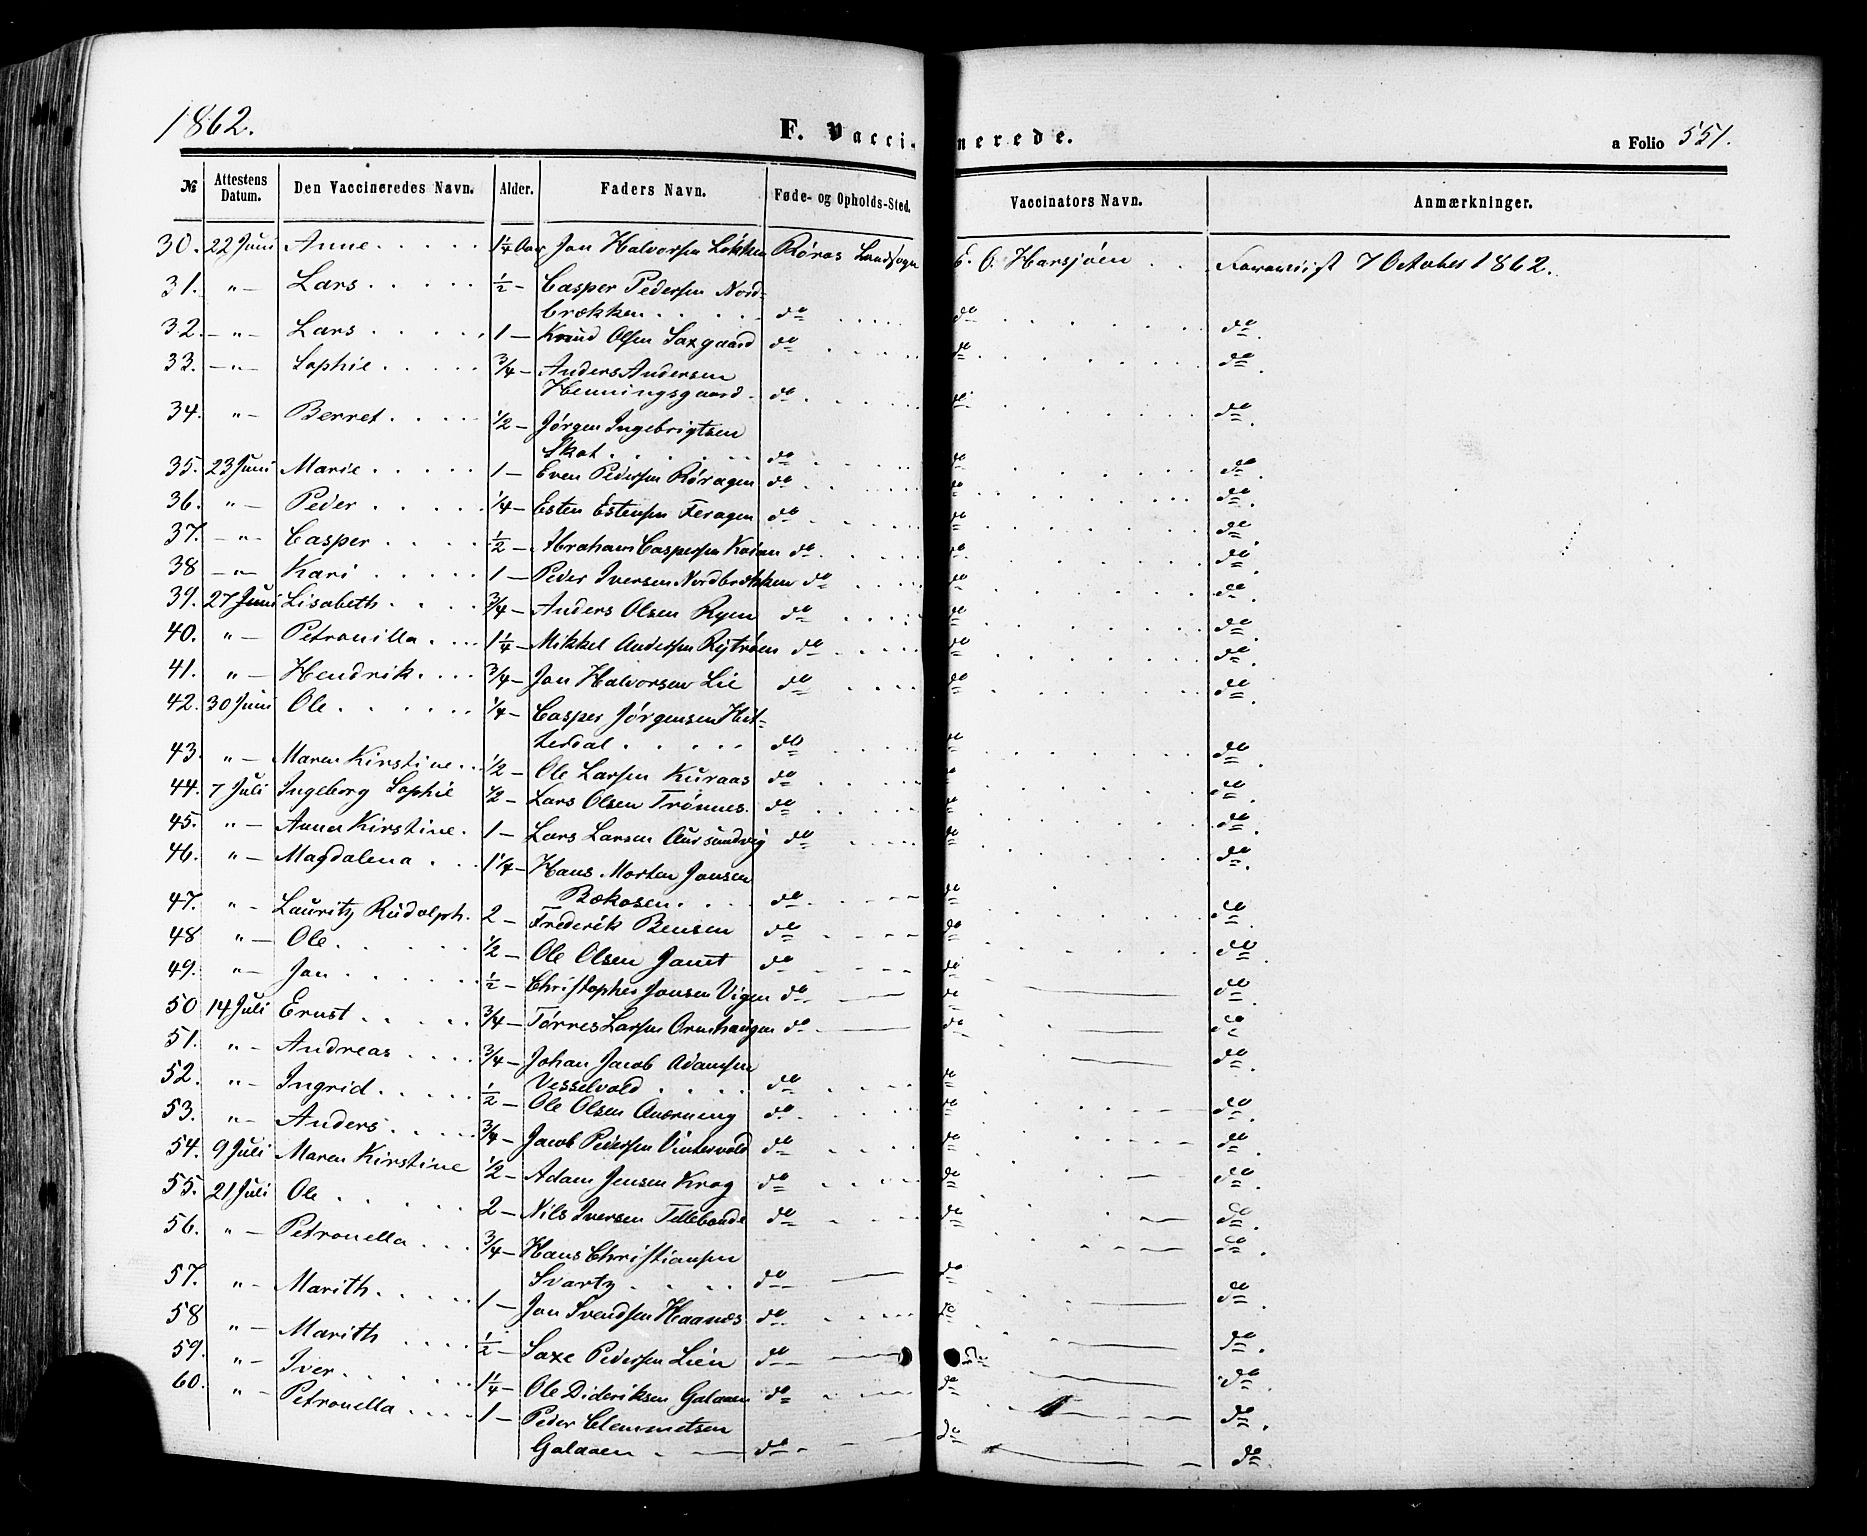 1862.
F. Vaccinerede.
a Folio 551.
№ Attestens Datum. Den Vaccineredes Navn. Alder. Faders Navn. Føde- og Opholds-Sted. Vaccinators Navn. Anmærkninger.
30. 22 Juni Anne . . . . . 1¼ Aar Jon Halvorsen Løkken Røros Landsogn E. O. Harsjøen . . Forevist 7 October 1862.
31. " – Lars . . . . . ½ – Casper Pedersen Nord-
brekken . . . . . do do do.
32. – " – Lars . . . . . 1 – Knud Olsen Saxgaard do do do.
33. – " – Sophie . . . . . ¾ – Anders Andersen
Henningsgaard . do do do.
34. " – Berret . . . . ½ – Jørgen Ingebrigtsen
Skot . . . . . . do do do.
35. 23 Juni Marie . . . . . 1 – Even Pedersen Røragen do do do.
36. " – Peder . . . . . ¼ – Esten Estensen Feragen do do do.
37. – " – Casper . . . . ½ – Abraham Caspersen Kojan do do do.
38 – " – Kari . . . . . 1 – Peder Iversen Nordbrekken do do do.
39. 27 Juni Lisabeth . . . . ¾ – Anders Olsen Ryen do do do.
40. " – Petronilla . . . . 1¼ – Mikkel Andersen Rytrøen do do do.
41. " – Hendrik . . . . ¾ – Jon Halvorsen Lie do do do.
42. 30 Juni Ole . . . . . . ¼ – Casper Jørgensen Hit-
terdal . . . . . do do do.
43. " – Maren Kirstine . . ½ – Ole Larsen Kuraas do do do.
44. 7 Juli Ingeborg Sophie ½ – Lars Olsen Trønnes. do do do.
45. " – Anna Kirstine . 1 – Lars Larsen Aursundvig do do do.
46. " – Magdalena . . . 1¼ – Hans Morten Jonsen
Bekosen . . . . do do do.
47. " – Lauritz Rudolph. 2 – Frederik Bensen do do do.
48 " – Ole . . . . . . ½ – Ole Olsen Jamt do do do.
49. " – Jon . . . . . . ½ – Christopher Jonsen Vigen do do do.
50 14 Juli Ernst . . . . . ¾ – Tørres Larsen Ormhaugen do do do
51. " – Andreas . . . . ¾ – Johan Jacob Adamsen
Vesselvold . . . . do do do.
52. " – Ingrid . . . . . ½ – Ole Olsen Aværning do do do.
53. " – Anders . . . . . ¾ – Jacob Pedersen Vintervold do do do.
54. 9 Juli Maren Kirstine ½ – Adam Jensen Krog do do do.
55. 21 Juli Ole . . . . . 2 – Nils Iversen Tillebonde do do do.
56. " – Petronella . . . ¾ – Hans Christiansen
Svartz . . . . do do do.
57. " – Marith . . . . . 1 – Jon Svendsen Haanæs do do do.
58 " – Marith . . . . ½ – Saxe Pedersen Lien do do do.
59. " – Iver . . . . . . 1¼ – Ole Dideriksen Galaaen do do do.
60. " – Petronella . . . . 1 – Peder Clemmetsen
Galaaen . do do do.